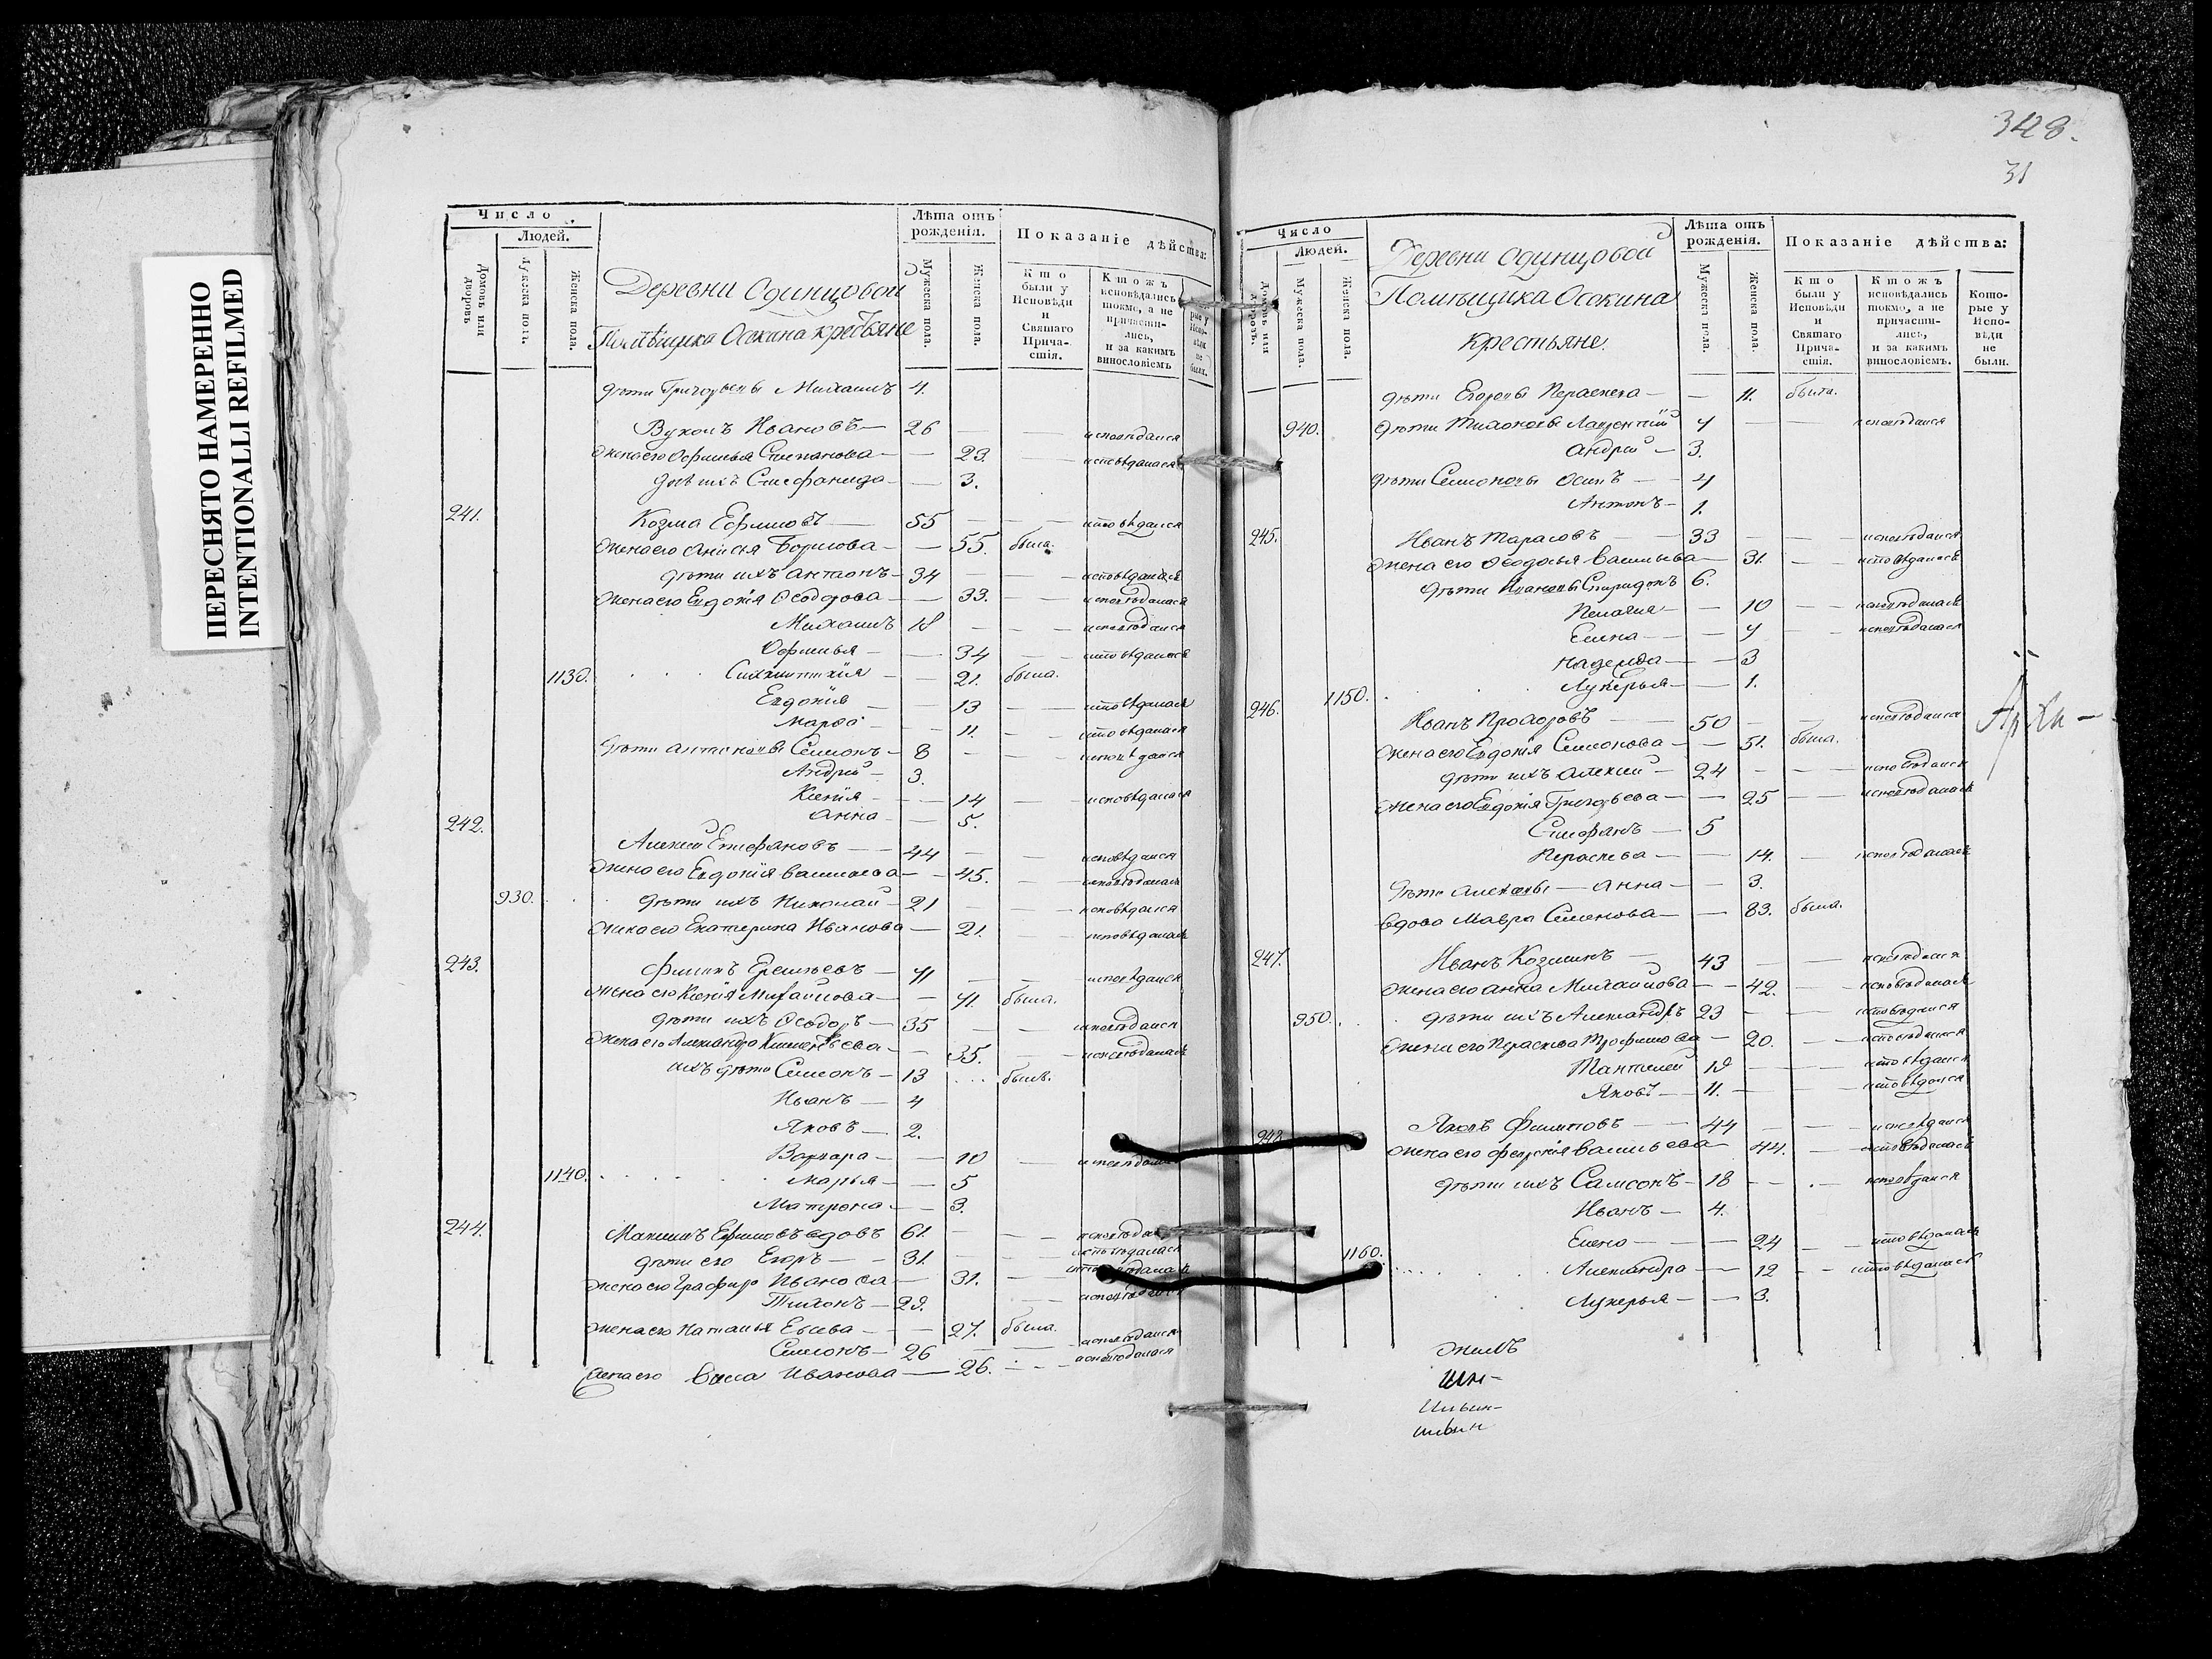 ПЕРЕСНЯТО НАМЕРЕННО
INTENTIONALLI REFILMED
Число
Людей.
Домовъ или дворовъ
Мужеска пола.
Женска пола.
Деревни Одинцовой
Помѣщика Осокина крестьяне
Лѣта отъ рожденія.
Мужеска пола.
Женска пола.
Показаніе дѣйства:
Кто были у Исповѣди и Святаго Причастія.
Ктожъ исповѣдались токмо, а не причастились, и за какимъ винословіемъ
рые у Испо-вѣди не были.
дѣти Григорьевы Михаилъ 4.
Вуколъ Ивановъ — 26 — — исповѣдался
жена его Афимья Степанова — — 23. — исповѣдалася
дѣти ихъ Стефанида — — 3.
241. Козма Ефимовъ — 55 — — — исповѣдался
жена его Анисья Борисова — — 55. была.
дѣти ихъ Антонъ — 34 — — — исповѣдался
жена его Евдокія Ѳеодорова — — 33. — — исповѣдалася
Михаилъ 18 — — — исповѣдался
Офимья — — 34 — исповѣдалася
1130. — — 21. была.
Евдокія — — 13 — — исповѣдалася
Марѳа — — 11. — исповѣдалася
дѣти Антоновы Симеонъ — 8 — — — исповѣдался
Андрей — 3.
Ксенія — — 14 — исповѣдалася
Анна — — 5.
242. Алексей Епифановъ — — 44 — — исповѣдался
жена его Евдокія Васильева — — 45. — исповѣдалась
930. дѣти ихъ Николай — 21 — — — исповѣдался
жена его Екатерина Иванова — 21. — исповѣдалась
243. Филипъ — 41 — — исповѣдался
жена его Ксенія Михайлова — — 41. была.
дѣти ихъ Ѳеодоръ — 35 — — исповѣдался
жена его Александра — — 35. — исповѣдалась
ихъ дѣти Симеонъ — 13 ... былъ.
Иванъ — 4
Яковъ — 2.
Варвара — — 10 —
1140. Марья — — 5
Матрона — — 3.
244. Максимъ Ефимовъ вдовъ 61. — — —
дѣти его Егоръ — — 31. — — исповѣдался
жена его Иванова — 31. —
Тихонъ — 29. — —
жена его Наталья Ильева — — 27. была.
Симеонъ — 26 — — исповѣдался
жена его Иванова — 26. — — исповѣдалася
348.
31
Число
Людей.
Домовъ или дворовъ.
Мужеска пола.
Женска пола.
Деревни Одинцовой
Помѣщика Осокина
крестьяне.
Лѣта отъ рожденія.
Мужеска пола.
Женска пола.
Показаніе дѣйства:
Кто были у Исповѣди и Святаго Причастія.
Ктожъ исповѣдались токмо, а не причастились, и за какимъ винословіемъ.
Которые у Исповѣди не были.
дѣти Егоровы Параскева — — 11. была.
940. дѣти Тихоновы Лаврентій 4 — — исповѣдался
Андрей — 3.
дѣти Симеоновы Осипъ — — 4
Антонъ — 1.
245. Иванъ Тарасовъ — 33 — — исповѣдался
жена его Ѳеодосья Васильева — 31. — — исповѣдалась
дѣти Ивановы Спиридонъ 6.
Пелагия — — 10 — — исповѣдалась
Елена — — 4 — — исповѣдалася
Надежда — — 3
1150. Лукерья — — 1.
246. Иванъ Прохоровъ — — 50 — — исповѣдался
жена его Евдокія Симеонова — — 51. была.
дѣти ихъ Алексій — 24 — — — исповѣдался
жена его Евдокія Григорьева — — 25 — — исповѣдалась
Стефанъ — 5
Параскева — — 14. — исповѣдалась
дѣти Алексѣевы — Анна — — 3.
вдова Мавра Семенова — — 83. была.
247. Иванъ Козминъ — 43 — — исповѣдался
жена его Анна Михайлова — — 42. — исповѣдалась
950. дѣти ихъ Александръ 23 — — исповѣдался
жена его Параскева Трофимова — 20. — — исповѣдалася
Пантелей 19 — — — исповѣдался
Яковъ — 11. — — — исповѣдался
248. Яковъ Филиповъ — — 44 — — исповѣдался
жена его Васильева — 44. — исповѣдалась
дѣти ихъ Самсонъ — 18 — — исповѣдался
Иванъ — 4.
Елена — — — 24 — исповѣдалась
1160. Александра — — 12 — — исповѣдалась
Лукерья — — 3.